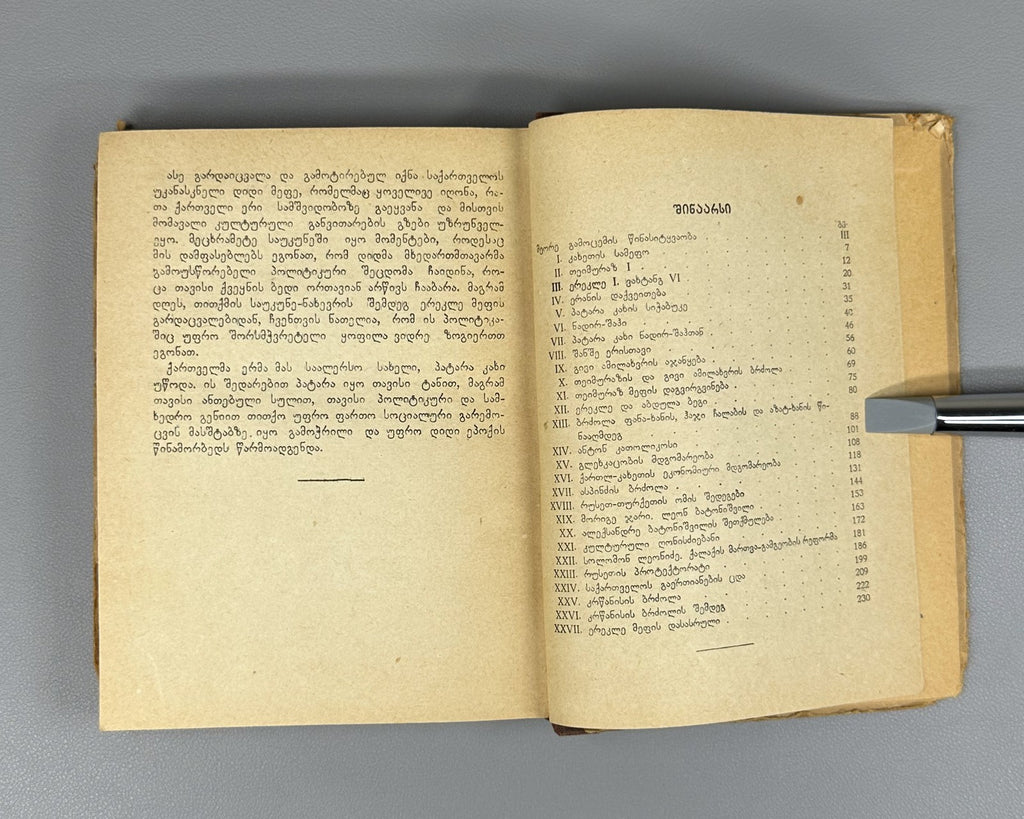 ასე გარდაიცვალა და გამოტირებულ იქნა საქართველოს
უკანასკნელი დიდი მეფე, რომელმაც ყოველივე იღონა, რა-
თა ქართველი ერი სამშვიდობოზე გაეყვანა და მისთვის
მომავალი კულტურული განვითარების გზები უზრუნველ-
ეყო. მეცხრამეტე საუკუნეში იყო მომენტები, როდესაც
მის დამფასებლებს ეგონათ, რომ დიდმა მხედართმთავარმა
გამოუსწორებელი პოლიტიკური შეცდომა ჩაიდინა, რო-
ცა თავისი ქვეყნის ბედი ორთავიან არწივს ჩააბარა. მაგრამ
დღეს, თითქმის საუკუნე-ნახევრის შემდეგ ერეკლე მეფის
გარდაცვალებიდან, ჩვენთვის ნათელია, რომ ის პოლიტიკა-
შიც უფრო შორსმჭვრეტელი ყოფილა ვიდრე ზოგიერთთ
ეგონათ.
ქართველმა ერმა მას საალერსო სახელი, პატარა კახი
უწოდა. ის შედარებით პატარა იყო თავისი ტანით, მაგრამ
თავისი ანთებული სულით, თავისი პოლიტიკური და სამ-
ხედრო გენიით თითქო უფრო ფართო სოციალური გარემო-
ცვის მასშტაბზე იყო გამოჭრილი და უფრო დიდი ეპოქის
წინამორბედს წარმოადგენდა.
შინაარსი
გვ.
მეორე გამოცემის წინასიტყვაობა III
I. კახეთის სამეფო 7
II. თეიმურაზ I 12
III. ერეკლე I. ვახტანგ VI 20
IV. ერანის დაქვეითება 31
V. პატარა კახის სიჭაბუკე 35
VI. ნადირ-შაჰი 40
VII. პატარა კახი ნადირ-შაჰთან 46
VIII. შანშე ერისთავი 56
IX. გივი ამილახვრის აჯანყება 60
X. თეიმურაზის და გივი ამილახვრის ბრძოლა 69
XI. თეიმურაზ მეფის დაგვირგვინება 75
XII. ერეკლე და აბდულა ბეგი 80
XIII. ბრძოლა ფანა-ხანის, ჰაჯი ჩალაბის და აზატ-ხანის წი-
ნააღმდეგ 88
XIV. ანტონ კათოლიკოსი 101
XV. გლეხკაცობის მდგომარეობა 108
XVI. ქართლ-კახეთის ეკონომიური მდგომარეობა 118
XVII. ასპინძის ბრძოლა 131
XVIII. რუსეთ-თურქეთის ომის შედეგები 144
XIX. მორიგე ჯარი. ლეონ ბატონიშვილი 153
XX. ალექსანდრე ბატონიშვილის შეთქმულება 163
XXI. კულტურული ღონისძიებანი 172
XXII. სოლომონ ლეონიძე. ქალაქის მართვა-გამგეობის რეფორმა 181
XXIII. რუსეთის პროტექტორატი 186
XXIV. საქართველოს გაერთიანების ცდა 199
XXV. კრწანისის ბრძოლა 209
XXVI. კრწანისის ბრძოლის შემდეგ 222
XXVII. ერეკლე მეფის დასასრული 230